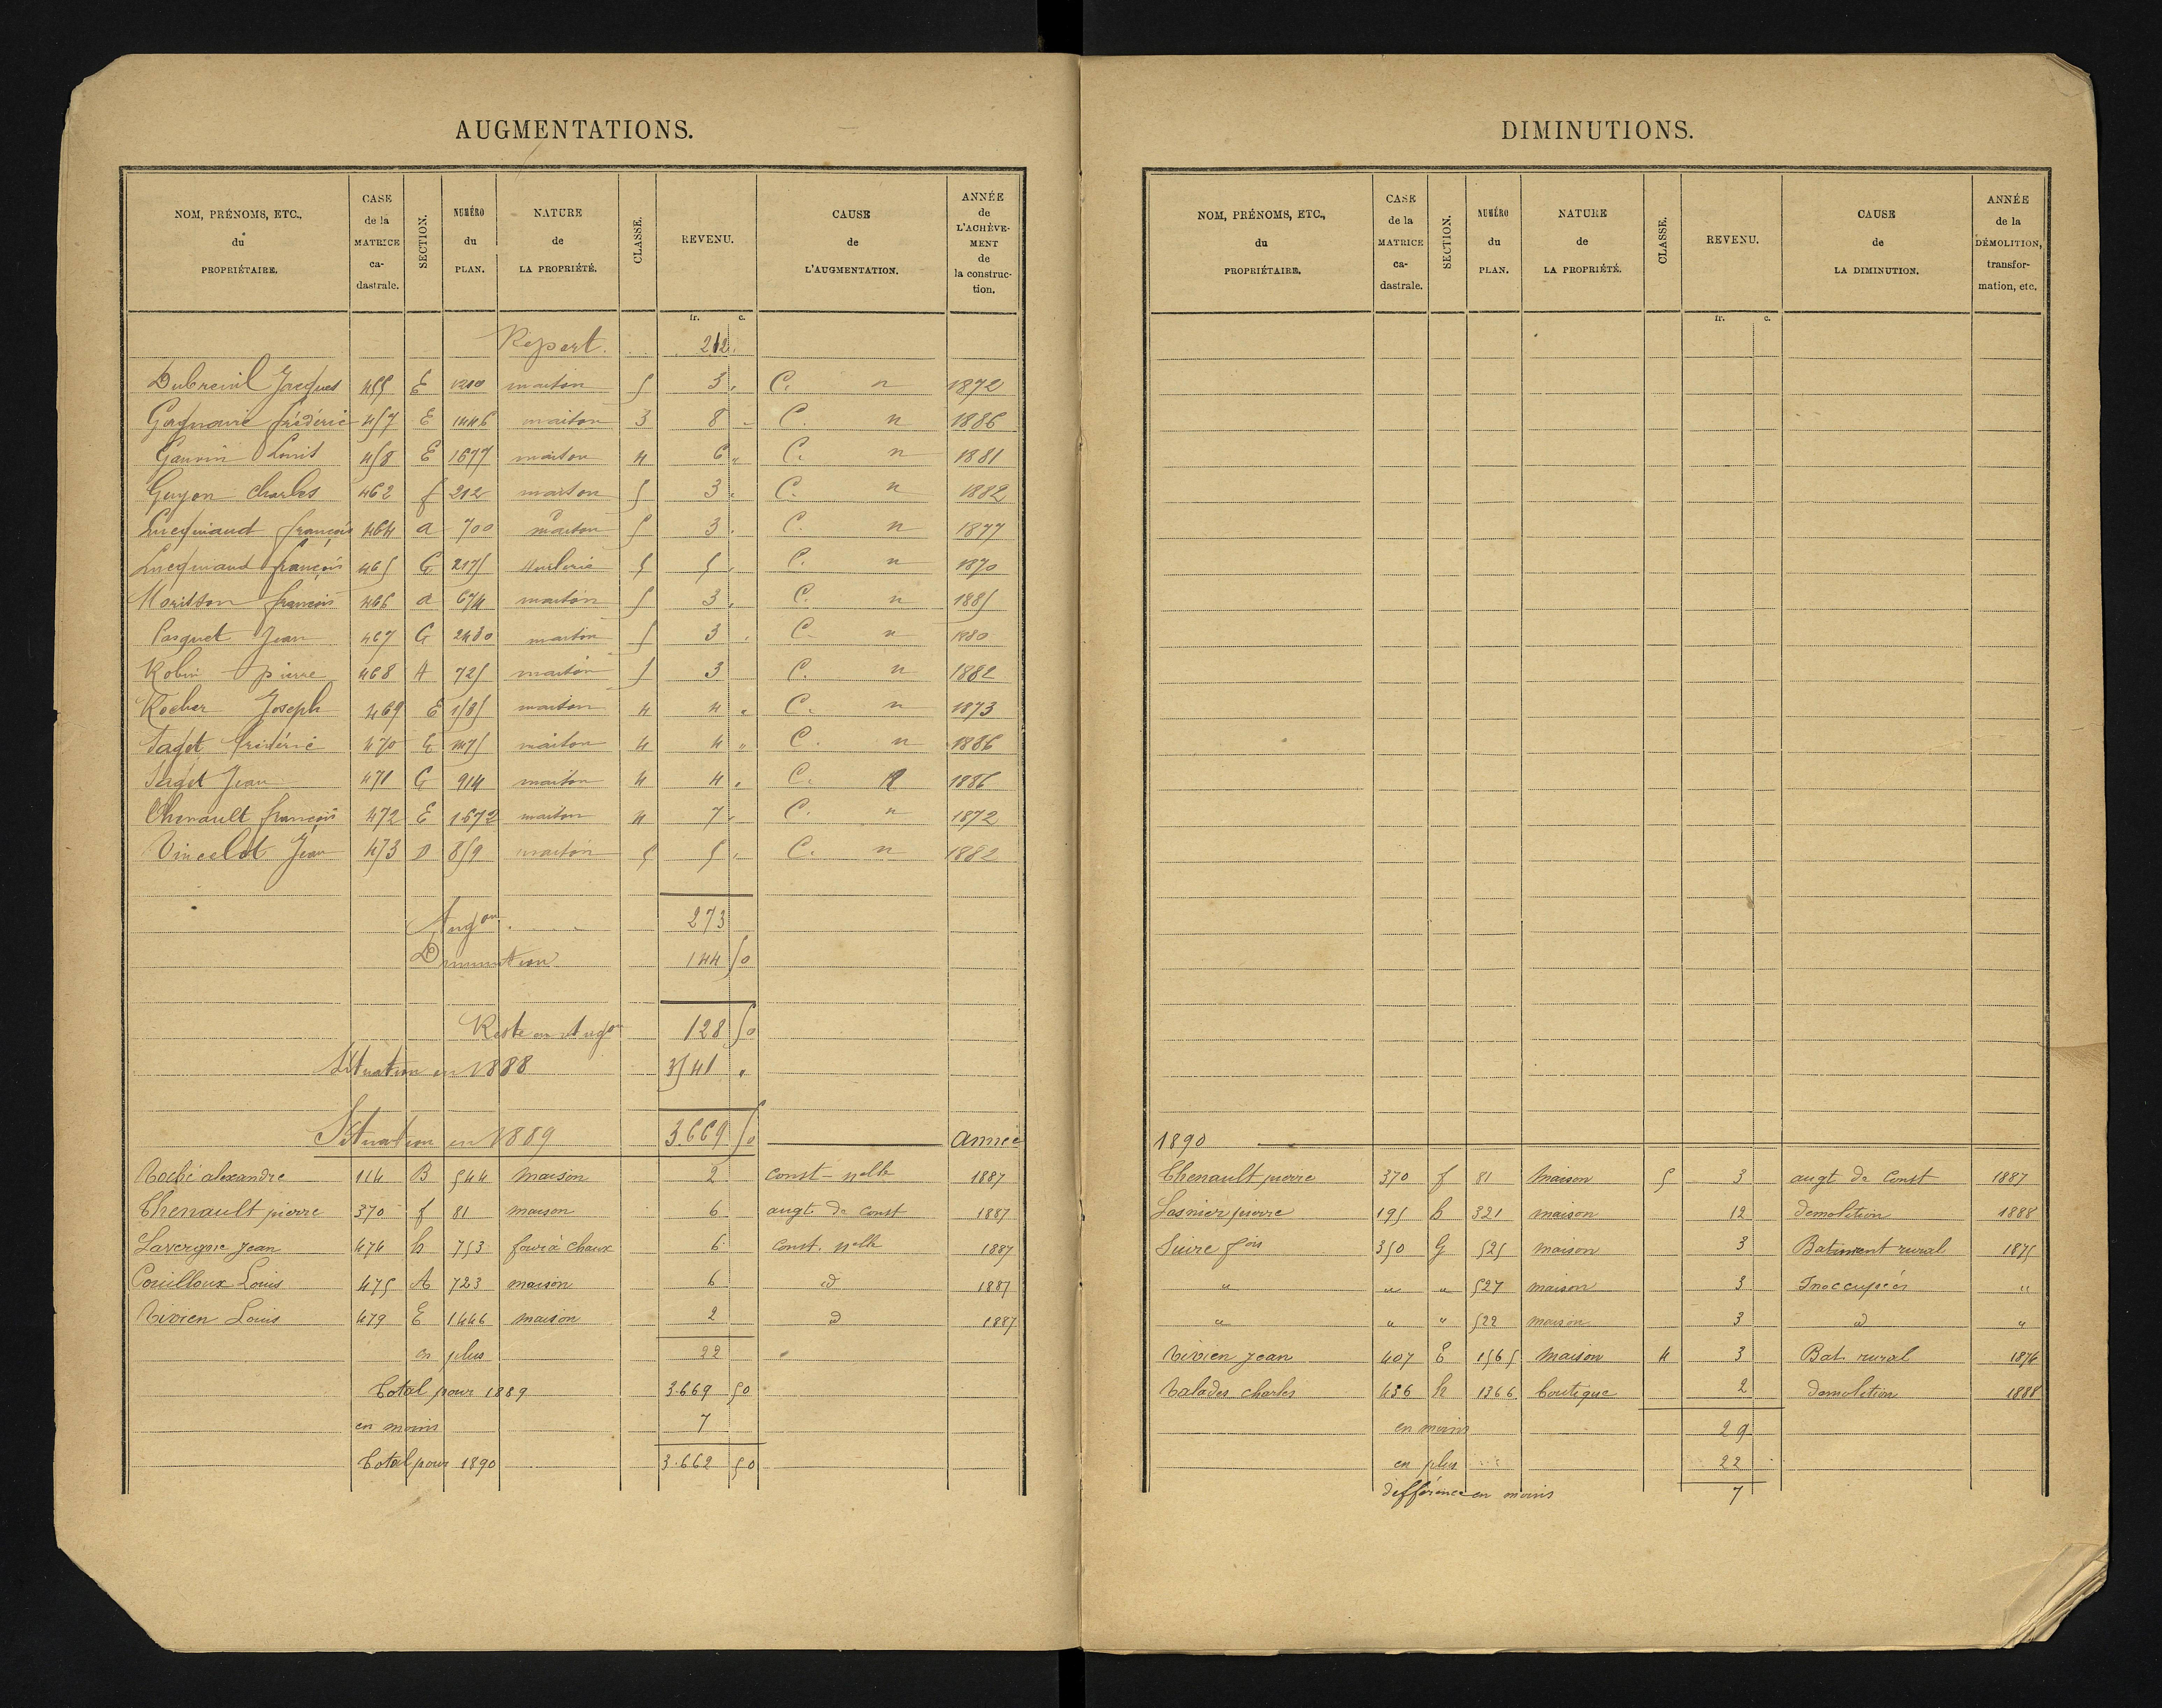 AUGMENTATIONS.
NOM, PRÉNOMS, ETC., du PROPRIÉTAIRE. CASE de la MATRICE ca-dastrale. SECTION. NUMÉRO du PLAN. NATURE de LA PROPRIÉTÉ. CLASSE. REVENU. CAUSE de L'AUGMENTATION. ANNÉE de L'ACHÈVE-MENT de la construc-tion.
fr. c.
Report. 212.
Dubreuil Jacques 455 E 1210 maison 5 3 " C. n 1872
frédéric 457 E 1446 maison 3 8 " C. n 1886
Gauvin Louis 458 E 1677 maison 4 6 " C. n 1881
Guyon Charles 462 f 212 maison 5 3 " C. n 1882
Lucquiaud françois 464 a 700 maison 5 3 " C. n 1877
Lucquiaud françois 465 G 2175 5 5 " C. n 1870
Morisson françois 466 a 674 maison 5 3 " C. n 1885
Pasquet Jean 467 G 2430 maison 5 3 " C. n 1880
Robin pierre 468 A 725 maison 5 3 C. n 1882
Rocher Joseph 469 E 1585 maison 4 4 " C. n 1873
frédéric 470 G maison 4 4 " C. n 1886
Jean 471 G 914 maison 4 4 " C. n 1886
Chenault françois 472 E 1672 maison 4 7 " C. n 1872
Vincelot Jean 473 D 859 maison 5 5 " C. n 1882
Augon 273
Diminution 144 50
Reste en Augon 128 50
Situation en 1888 3541 "
Situation en 1889 3.669 50 Année
alexandre 114 B 544 maison 2 const - nelle 1887
Chenault pierre 370 f 81 maison 6 augt. de const 1887
Lavergne Jean 474 h 753 four à chaux 6 const. nelle 1887
Couilloux Louis 475 A 723 maison 6 id 1887
Louis 479 E 1446 maison 2 id 1887
en plus 22
Total pour 1889 3.669 50
en moins 7
Total pour 1890 3.662 50
DIMINUTIONS.
NOM, PRÉNOMS, ETC., du PROPRIÉTAIRE. CASE de la MATRICE ca-dastrale. SECTION. NUMÉRO du PLAN. NATURE de LA PROPRIÉTÉ. CLASSE. REVENU. CAUSE de LA DIMINUTION. ANNÉE de la DÉMOLITION, transfor-mation, etc.
fr. c.
1890
Chenault pierre 370 f 81 Maison 5 3 augt de Const 1887
Lasnier pierre 195 B 321 maison 12 demolition 1888
Suire fois 350 G 525 maison 3 Batiment rural 1875
" " " 527 maison 3 Inoccupées "
" " " 522 maison 3 id "
Jean 407 E 1565 Maison 4 3 Bat. rural 1876
charles 436 h 1366 boutique 2 demolition 1888
en moins 29
en plus 22
différence en moins 7